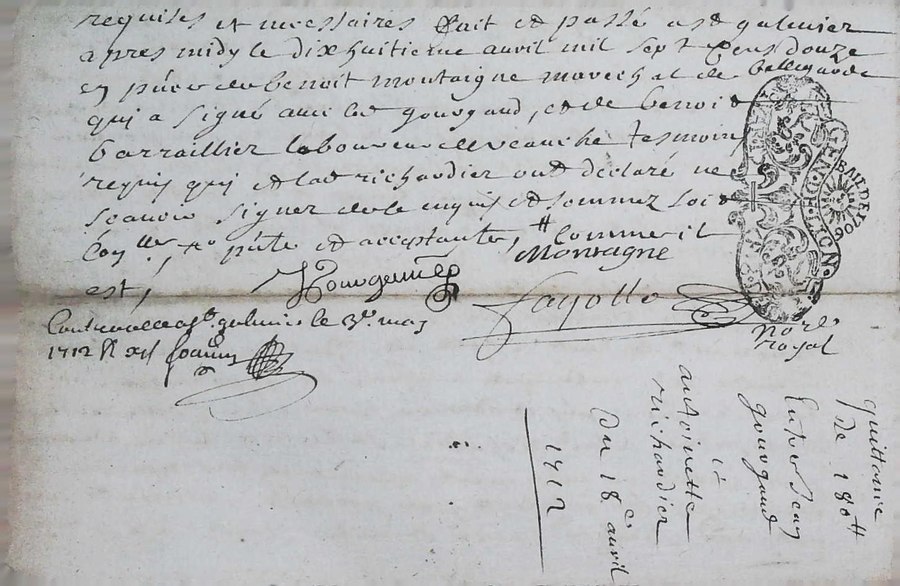 requises et necessaires fait et passé a st galmier
apres midy le dix huitieme avril mil sept cens douze
en pnce de benoit montaigne marechal de bellegarde
qui a signé avec led gourgaud, et de benoit
barraillier laboureur de veauche tesmoins
requis qui et lad richardier ont déclaré ne
scavoir signer de ce enquis et sommez soit
pnte et acceptante, # Comme il
est,
Montagne
fayolle
Contrerollé a st galmier le 3e. may
1712
No.re
royal
GE BAIL DE 1706
quittance
de 180 #
Jean
gourgaud
à
antoinette
richardier
Du 18e avril
1712